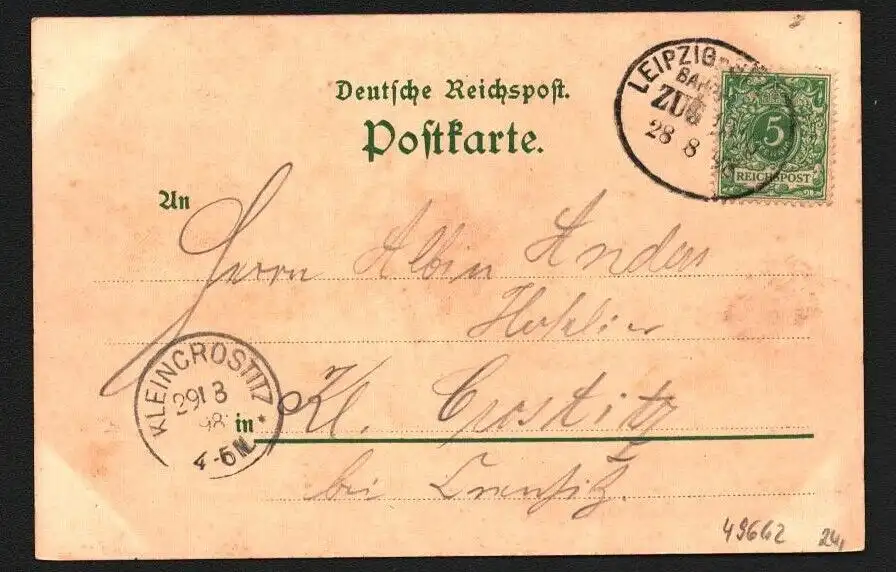 Deutsche Reichspost.
Postkarte.
LEIPZIG
ZUG
28 8
5
REICHSPOST
An
Herrn Albin Andas
Kl. Crostitz
in
bei
KLEINCROSTITZ
29 8
98
4-5 N.
49662
24,